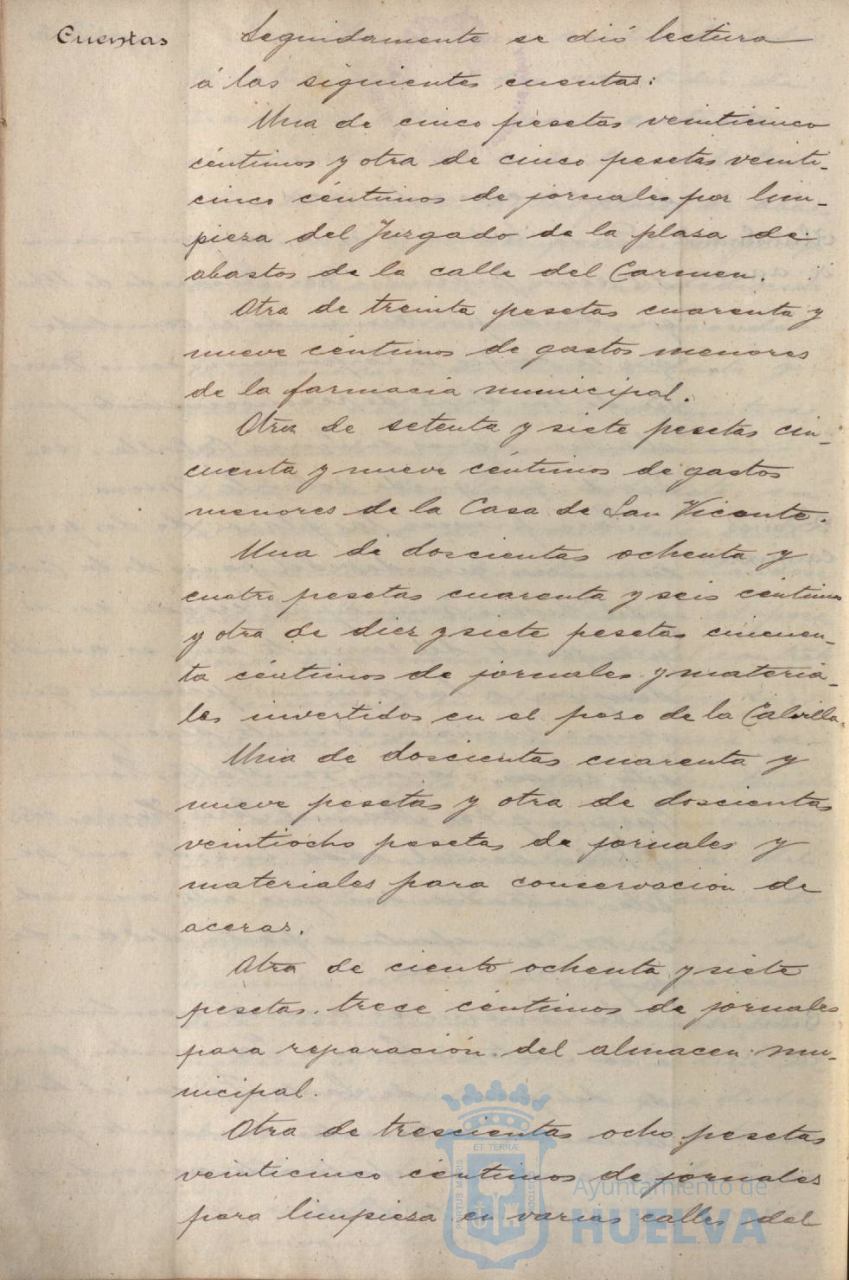 Cuentas
Seguidamente se dió lectura
á las siguientes cuentas:
Una de cinco pesetas veinticinco
céntimos y otra de cinco pesetas veinti-
cinco céntimos de jornales por lim-
pieza del Juzgado de la plasa de
abastos de la calle del Carmen.
Otra de treinta pesetas cuarenta y
nueve céntimos de gastos menores
de la farmacia municipal.
Otra de setenta y siete pesetas cin-
cuenta y nueve céntimos de gastos
menores de la Casa de San Vicente.
Una de doscientas ochenta y
cuatro pesetas cuarenta y seis céntimos
y otra de diez y siete pesetas cincuen-
ta céntimos de jornales y materia-
les invertidos en el poso de la Calvilla.
Una de doscientas cuarenta y
nueve pesetas y otra de doscientas
veintiocho pesetas de jornales y
materiales para conservacion de
aceras.
Otra de ciento ochenta y siete
pesetas trece céntimos de jornales
para reparación del almacen mu-
nicipal.
Otra de trescientas ocho pesetas
veinticinco céntimos de jornales
para limpiesa en varias calles del
ET TERRA
Ayuntamiento de
HUELVA